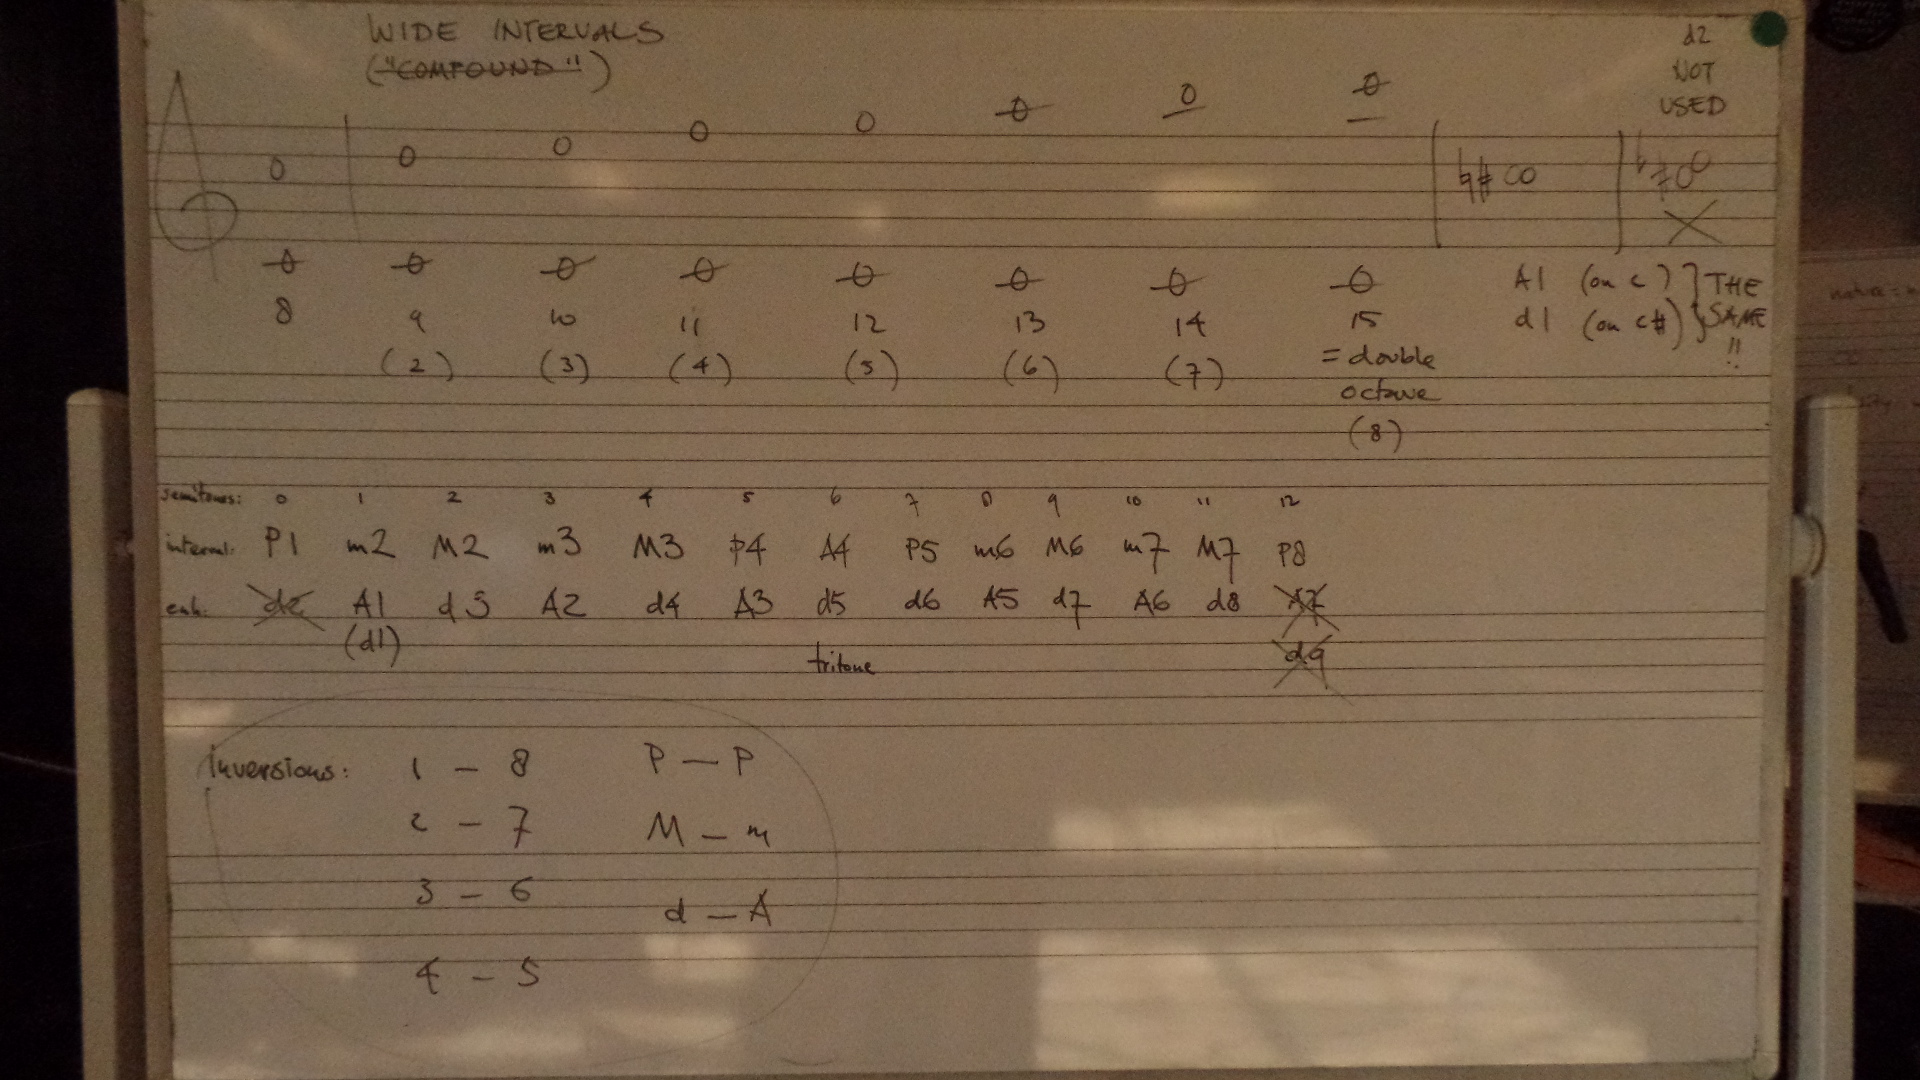 WIDE INTERVALS
("COMPOUND")
d2
NOT
USED
8 9 10 11 12 13 14 15
(2) (3) (4) (5) (6) (7) = double
octave
(8)
A1 (on c) } THE
d1 (on c#) } SAME
!!
semitones: 0 1 2 3 4 5 6 7 8 9 10 11 12
interval: P1 m2 M2 m3 M3 P4 A4 P5 m6 M6 m7 M7 P8
enh. d2 A1 d3 A2 d4 A3 d5 d6 A5 d7 A6 d8 A7
(d1) tritone d9
Inversions: 1 – 8 P – P
2 – 7 M – m
3 – 6 d – A
4 – 5